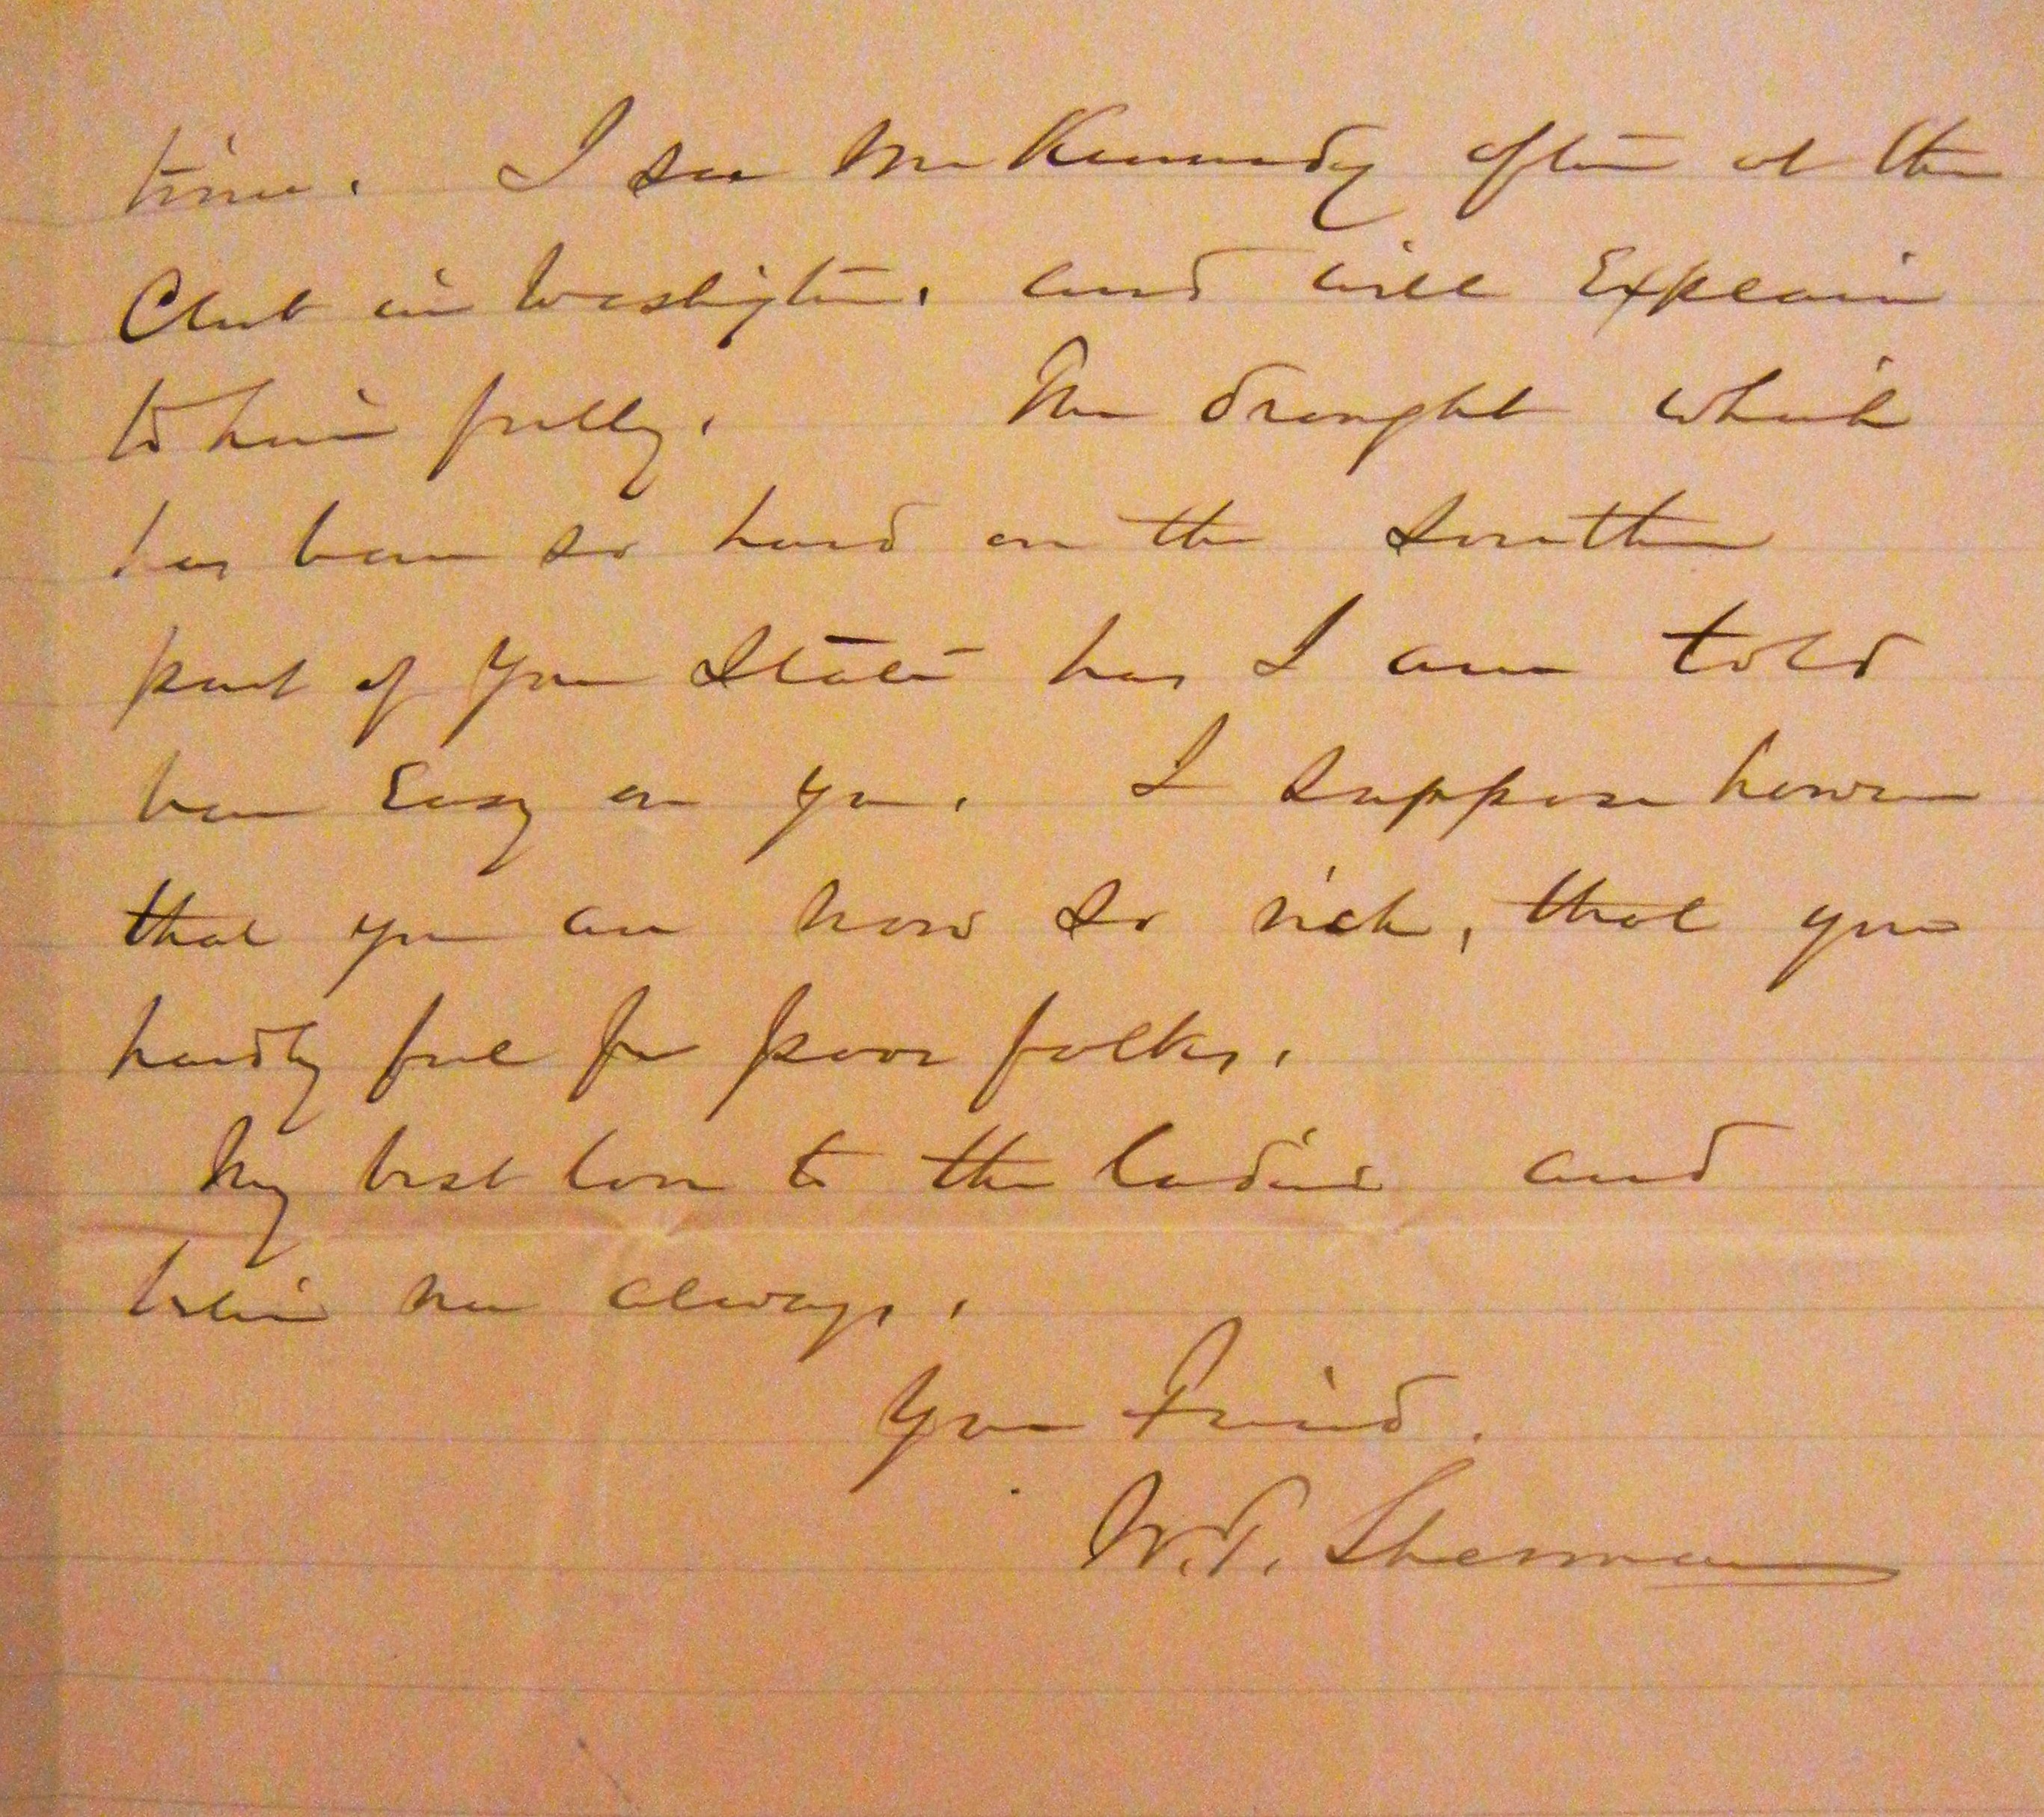 time. I see Mr Kennedy often at the
Club in Washington. and will Explain
to him fully. The drought which
has been so hard on the Southern
part of your State has I am told
been Easy on you. I suppose however
that you are now so rich, that you
hardly feel for poor folks.
My best love to the ladies and
believe me always.
Your Friend.
W.T. Sherman